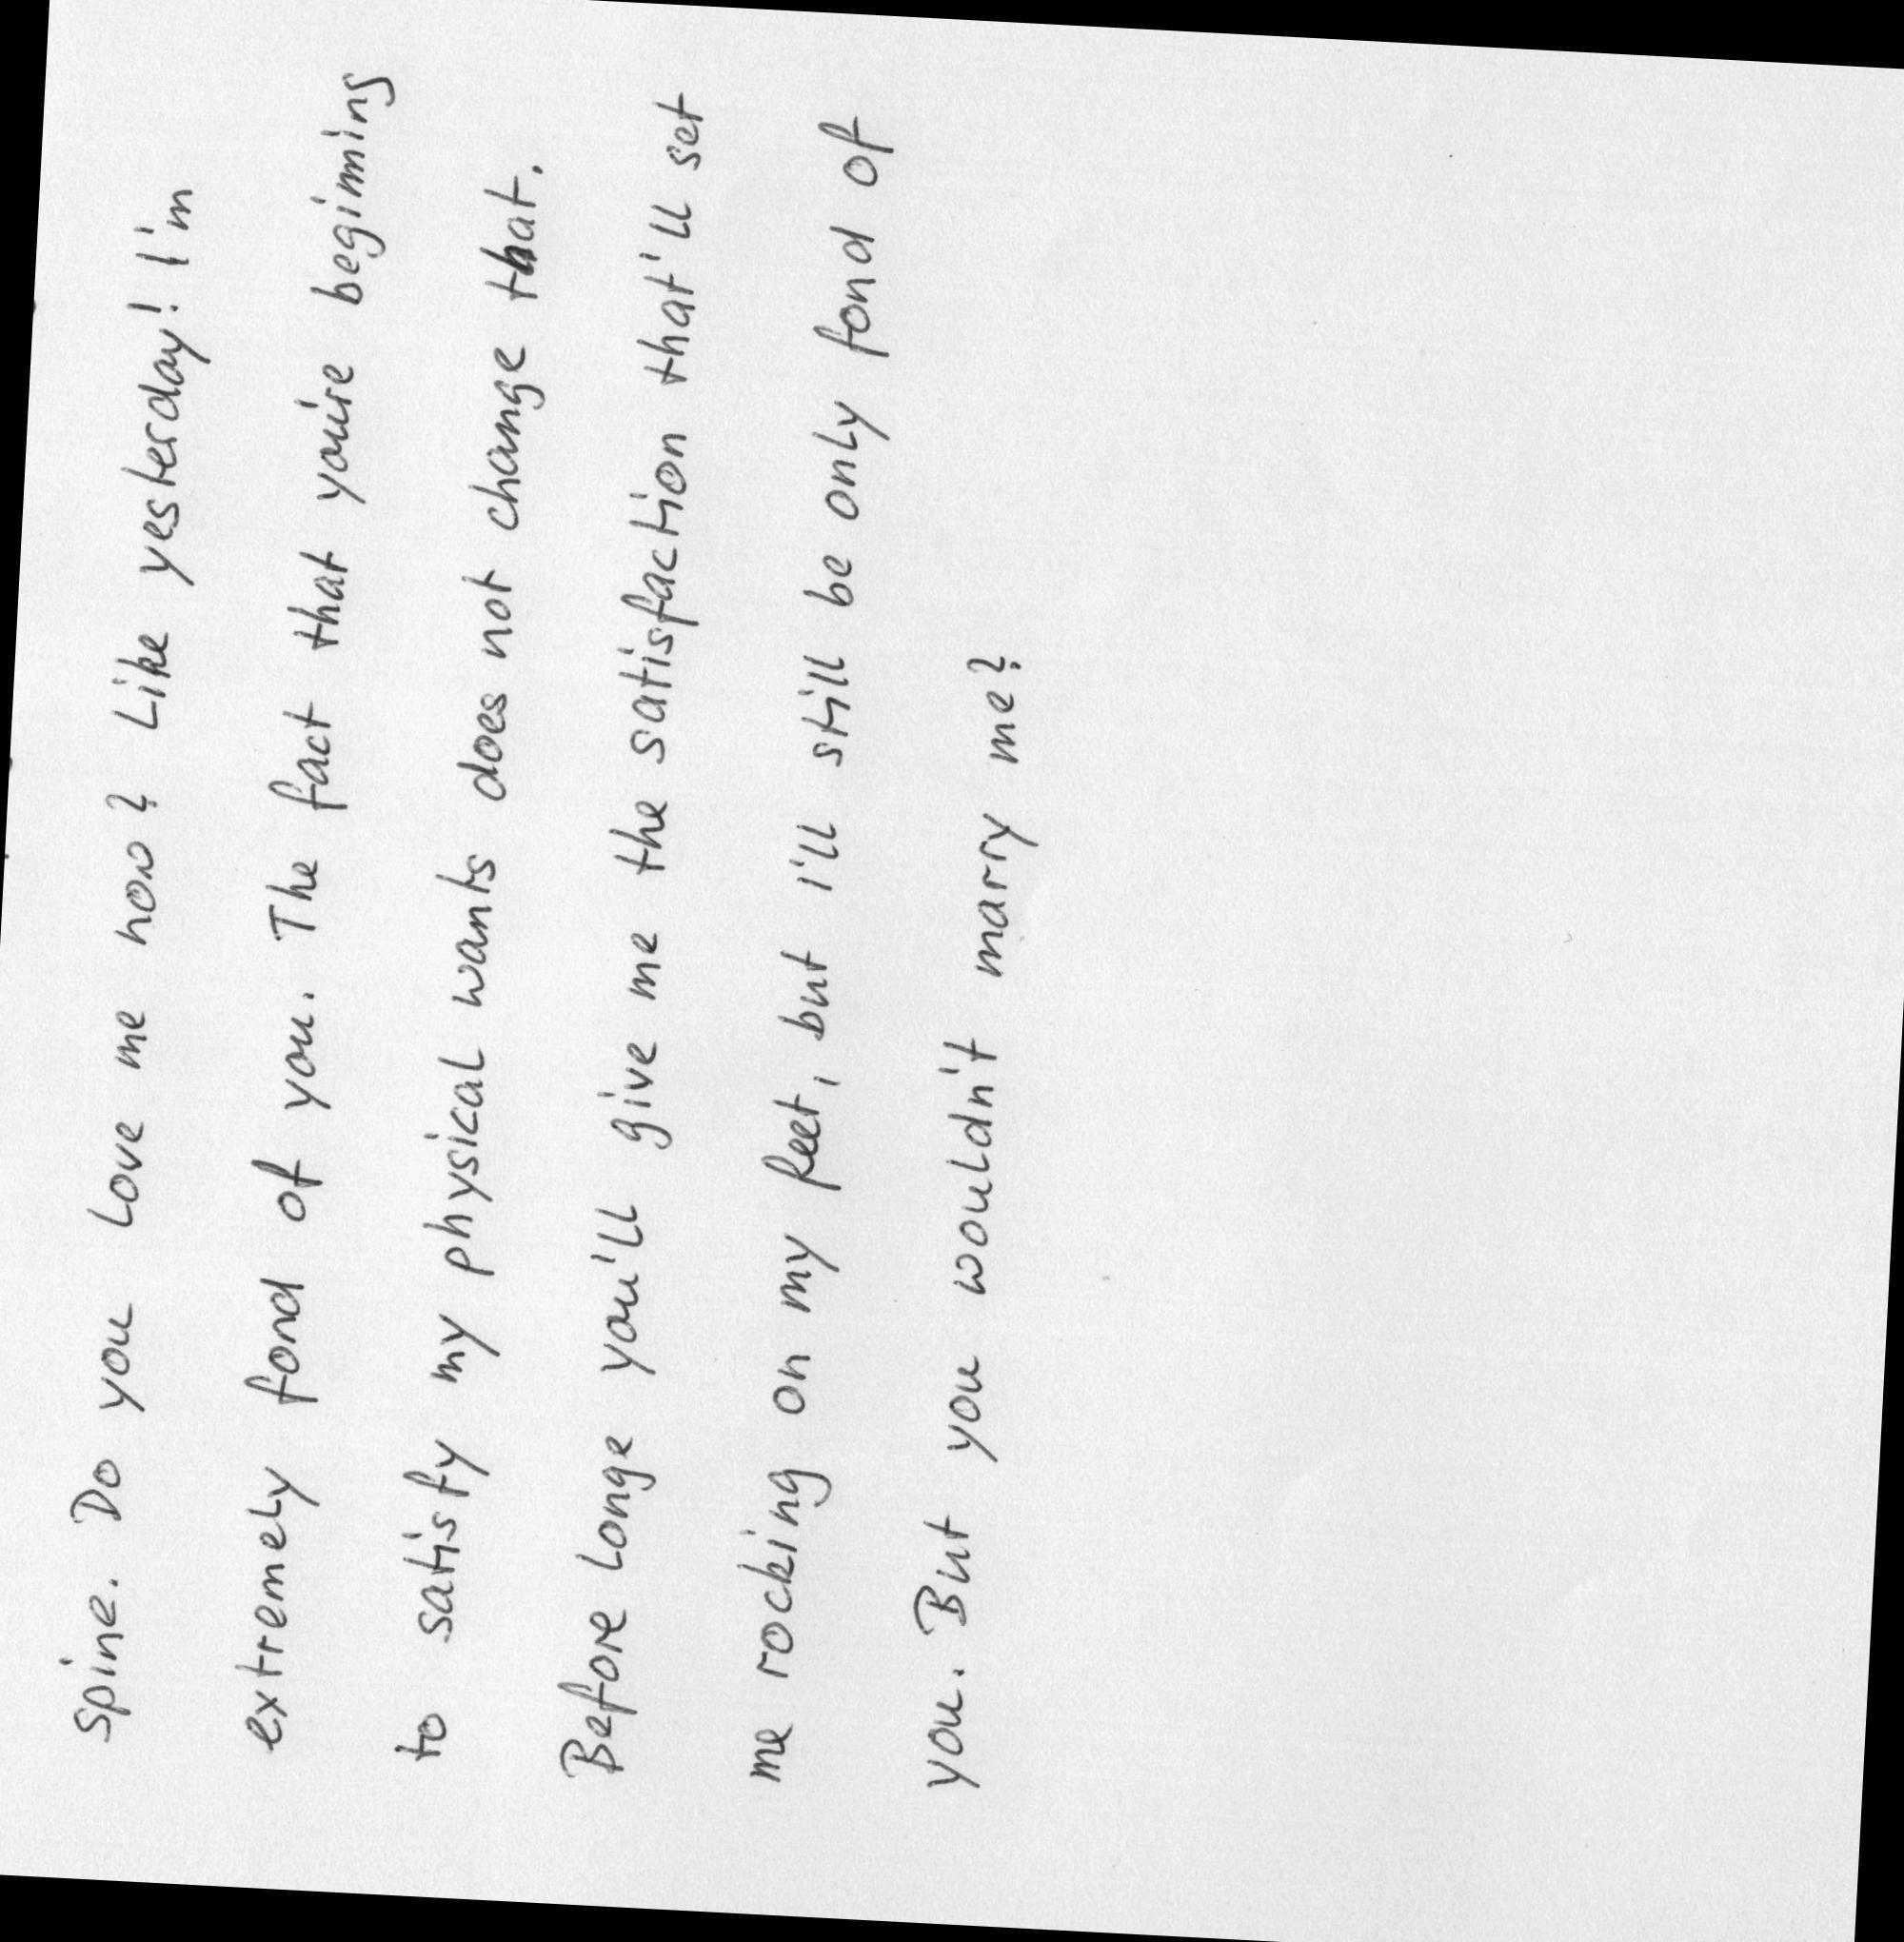 spine. Do you love me now? Like yesterday! I'm
extremely fond of you. The fact that you're beginning
to satisfy my physical wants does not change that.
Before long you'll give me the satisfaction that'll set
me rocking on my feet, but i'll still be only fond of
you. But you wouldn't marry me?